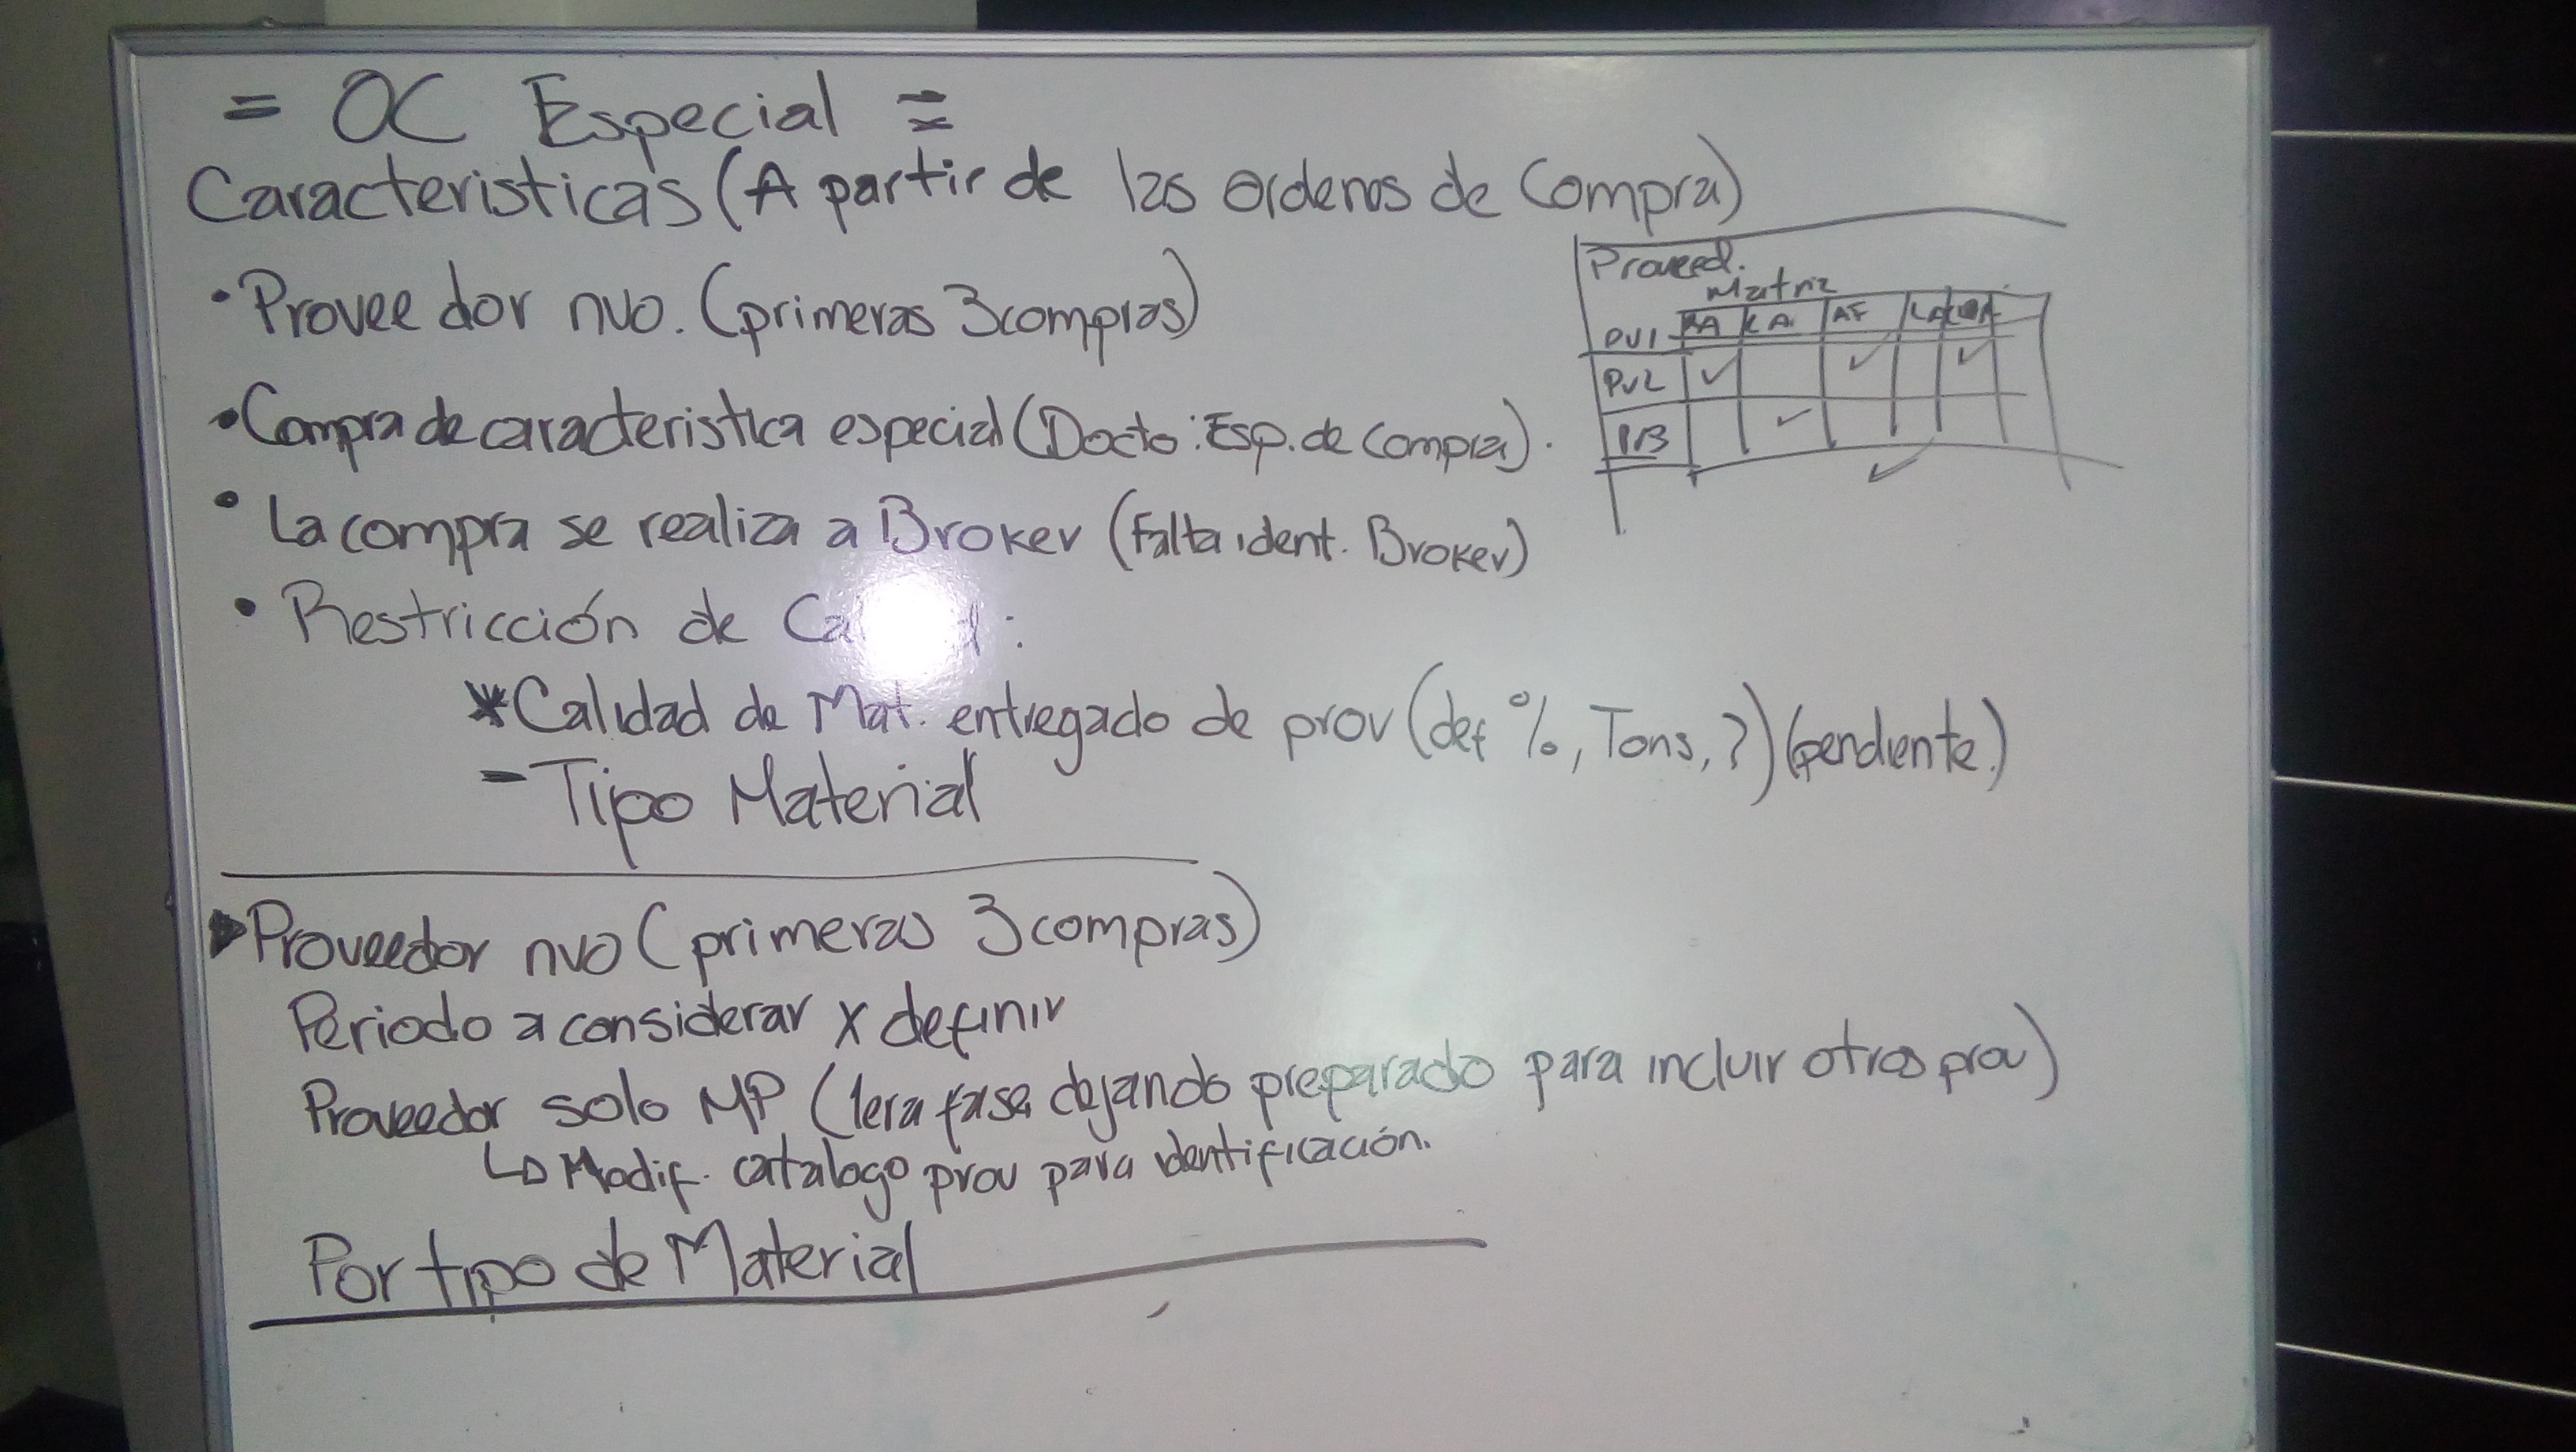 = OC Especial =
Caracteristicas (A partir de las ordenes de Compra)
• Proveedor nvo. (primeras 3 compras)
• Compra de caracteristica especial (Docto: Esp. de Compra).
• La compra se realiza a Broker (falta ident. Broker)
• Restricción de
* Calidad de Mat. entregado de prov (def %, Tons, ?) (pendiente)
- Tipo Material
Proveed.
Matriz
PV1
PV2 ✓ ✓ ✓
✓
✓
▶ Proveedor nvo (primeras 3 compras)
Periodo a considerar x definir
Proveedor solo MP (1era fase dejando preparado para incluir otros prov)
↳ Modif. catalogo prov para identificación.
Por tipo de Material